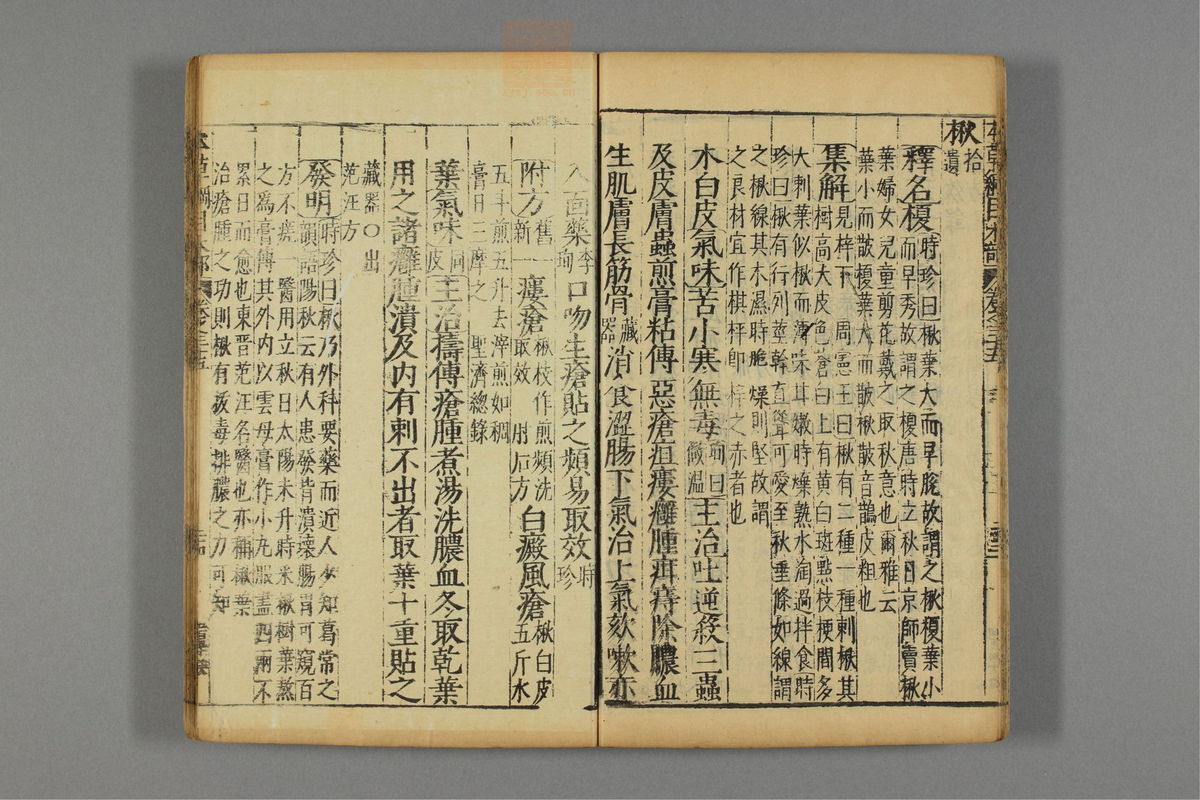 本草綱目木部 卷三十五
楸拾遺
釋名榎時珍曰楸葉大而早脫故謂之楸榎葉小
而早秀故謂之榎唐時立秋日京師賣楸
葉婦女兒童剪花戴之取秋意也爾雅云
葉小而皵榎葉大而皵楸皵音鵲皮粗也
集解見梓下周憲王曰楸有二種一種刺楸其
樹高大皮色蒼白上有黄白斑點枝梗間多
大刺葉似楸而薄味甘嫩時煠熟水淘過拌食時
珍曰楸有行列莖幹直聳可愛至秋垂條如線謂
之楸線其木濕時脆燥則堅故謂
之良材宜作棋枰即梓之赤者也
木白皮氣味苦小寒無毒珣曰微温主治吐逆殺三蟲
及皮膚蟲煎膏粘傅惡瘡疽瘻癰腫疳痔除膿血
生肌膚長筋骨藏器消食澀腸下氣治上氣欬嗽亦
入面藥李珣口吻生瘡貼之頻易取效時珍
附方舊一新一瘻瘡楸枝作煎頻洗取效肘后方白癜風瘡楸白皮五斤水
五斗煎五升去滓煎如稠
膏日三摩之聖濟總錄
葉氣味同皮主治擣傅瘡腫煮湯洗膿血冬取乾葉
用之諸癰腫潰及内有刺不出者取葉十重貼之
藏器○出
范汪方
發明時珍曰楸乃外科要藥而近人少知葛常之
韻語陽秋云有人患發背潰壞腸胃可窺百
方不瘥一醫用立秋日太陽未升時采楸樹葉熬
之爲膏傅其外内以雲母膏作小丸服盡四兩不
累日而愈也東晋范汪名醫也亦稱楸葉
治瘡腫之功則楸有拔毒排膿之力可知
本草綱目木部 卷三十五